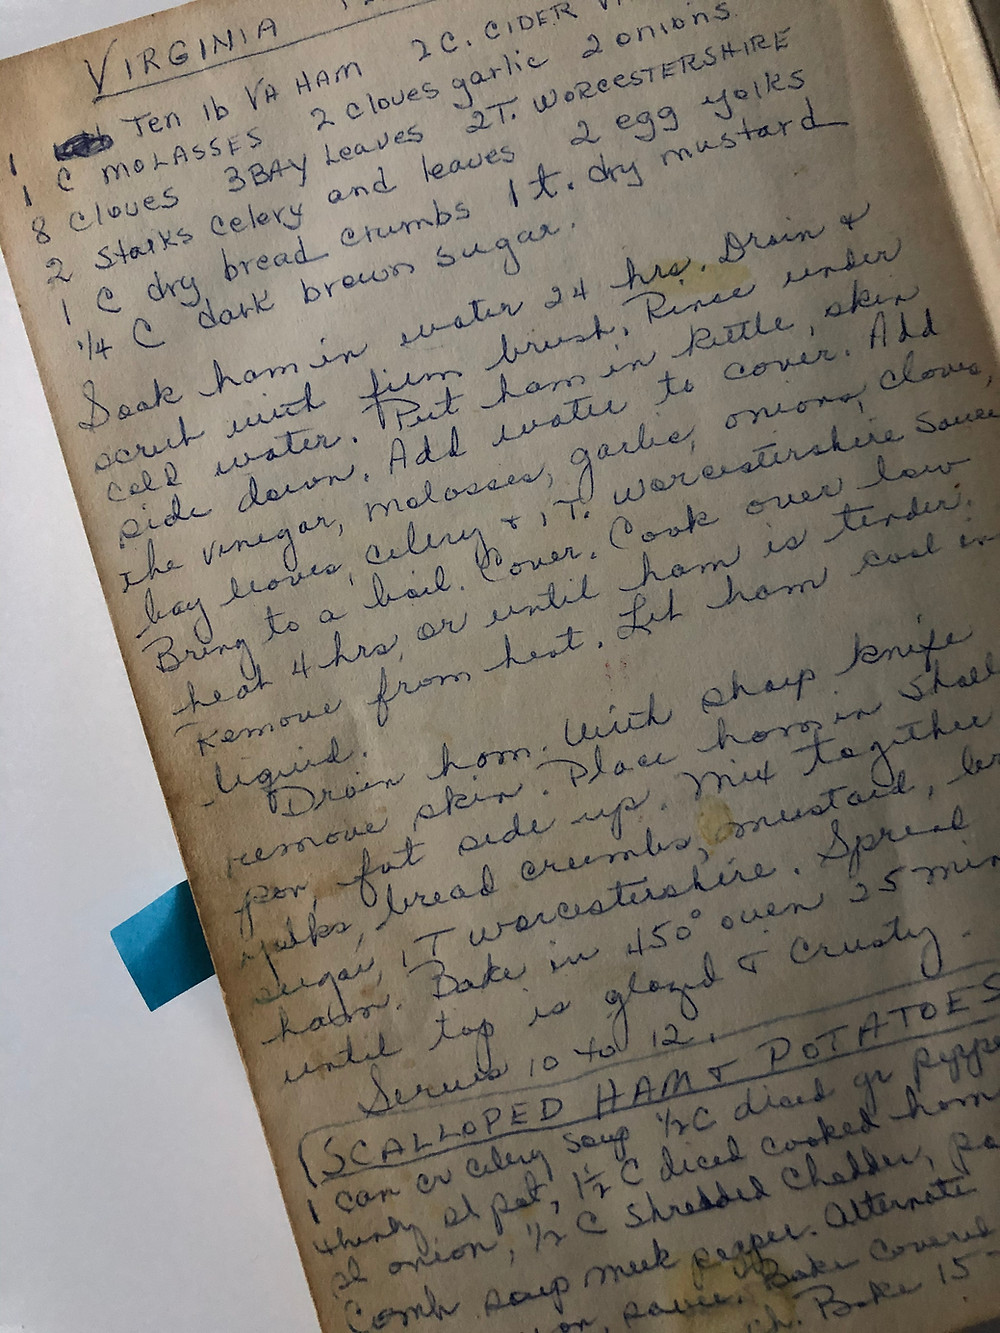 VIRGINIA
1 Ten lb VA HAM 2 C. CIDER
1 C MOLASSES 2 cloves garlic 2 onions
8 cloves 3 BAY Leaves 2 T. WORCESTERSHIRE
2 Stalks celery and leaves 2 egg yolks
1 C dry bread crumbs 1 t. dry mustard
1/4 C dark brown sugar.
Soak ham in water 24 hrs. Drain &
scrub with firm brush. Rinse under
cold water. Put ham in kettle, skin
side down. Add water to cover. Add
the vinegar, molasses, garlic, onions, cloves,
bay leaves, celery & 1 T. Worcestershire Sauce
Bring to a boil. Cover. Cook over low
heat 4 hrs, or until ham is tender.
Remove from heat. Let ham cool in
liquid.
Drain ham. With sharp knife
remove skin. Place ham in
pan, fat side up. Mix together
yolks, bread crumbs, mustard,
sugar, 1 T Worcestershire. Spread
ham. Bake in 450° oven 25 min
until top is glazed & crusty.
Serves 10 to 12.
SCALLOPED HAM & POTATOES
1 can cr celery soup 1/2 C diced gr
thinly sl pot, 1 1/2 C diced cooked ham
sl onion, 1/2 C Shredded Cheddar,
Comb soup milk pepper. Alternate
sauce. Bake covered
Bake 15